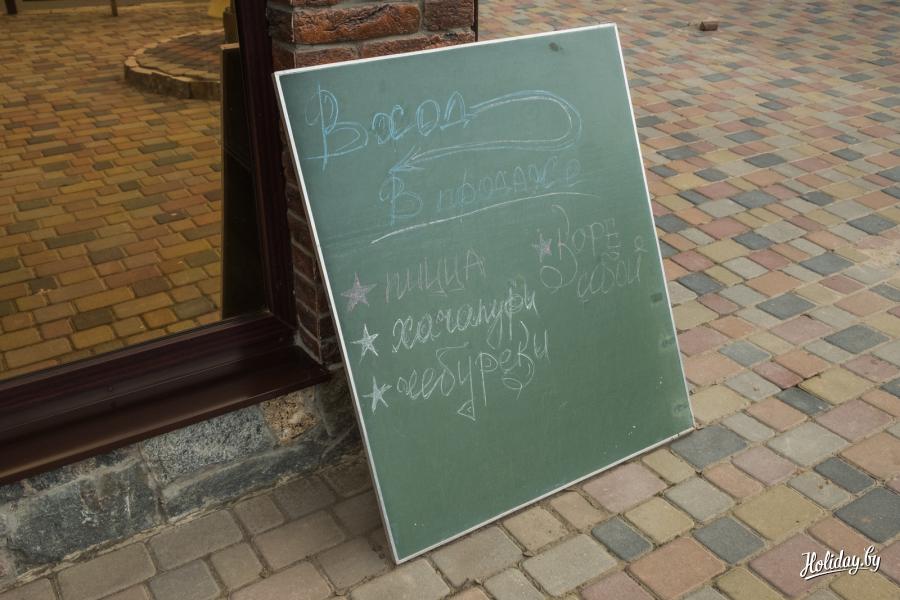 Вход
В продаже
пицца
хачапури
чебуреки
Кофе
собой
Holiday.by